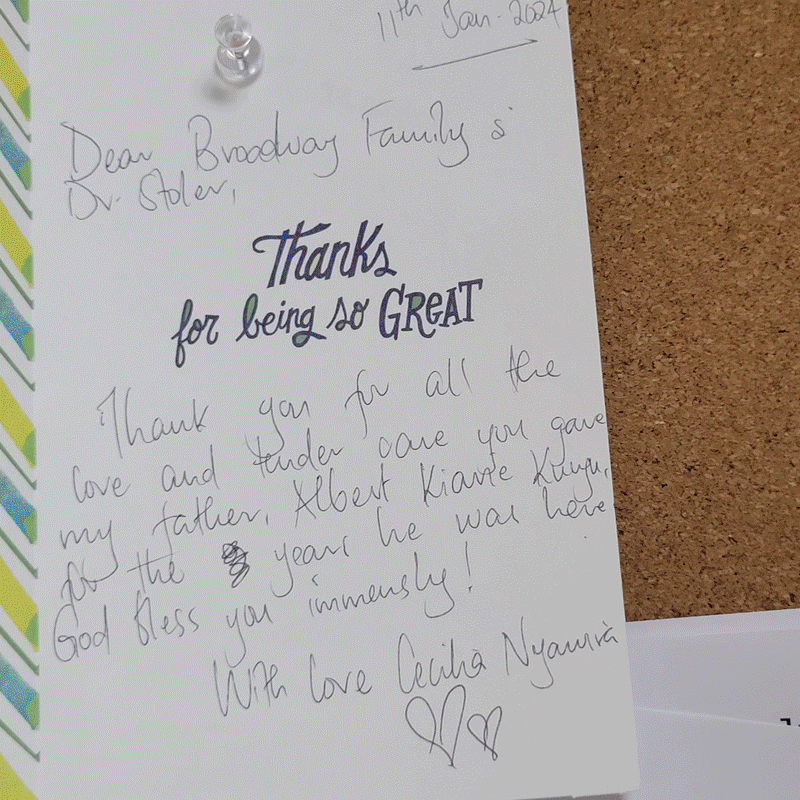 11th Jan. 2024
Dear Broadway Family &
Dr. Stoler,
Thanks
for being so GREAT
Thank you for all the
love and tender care you gave
my father, Albert Kiarie
for the years he was here
God bless you immensly!
With love Cecilia